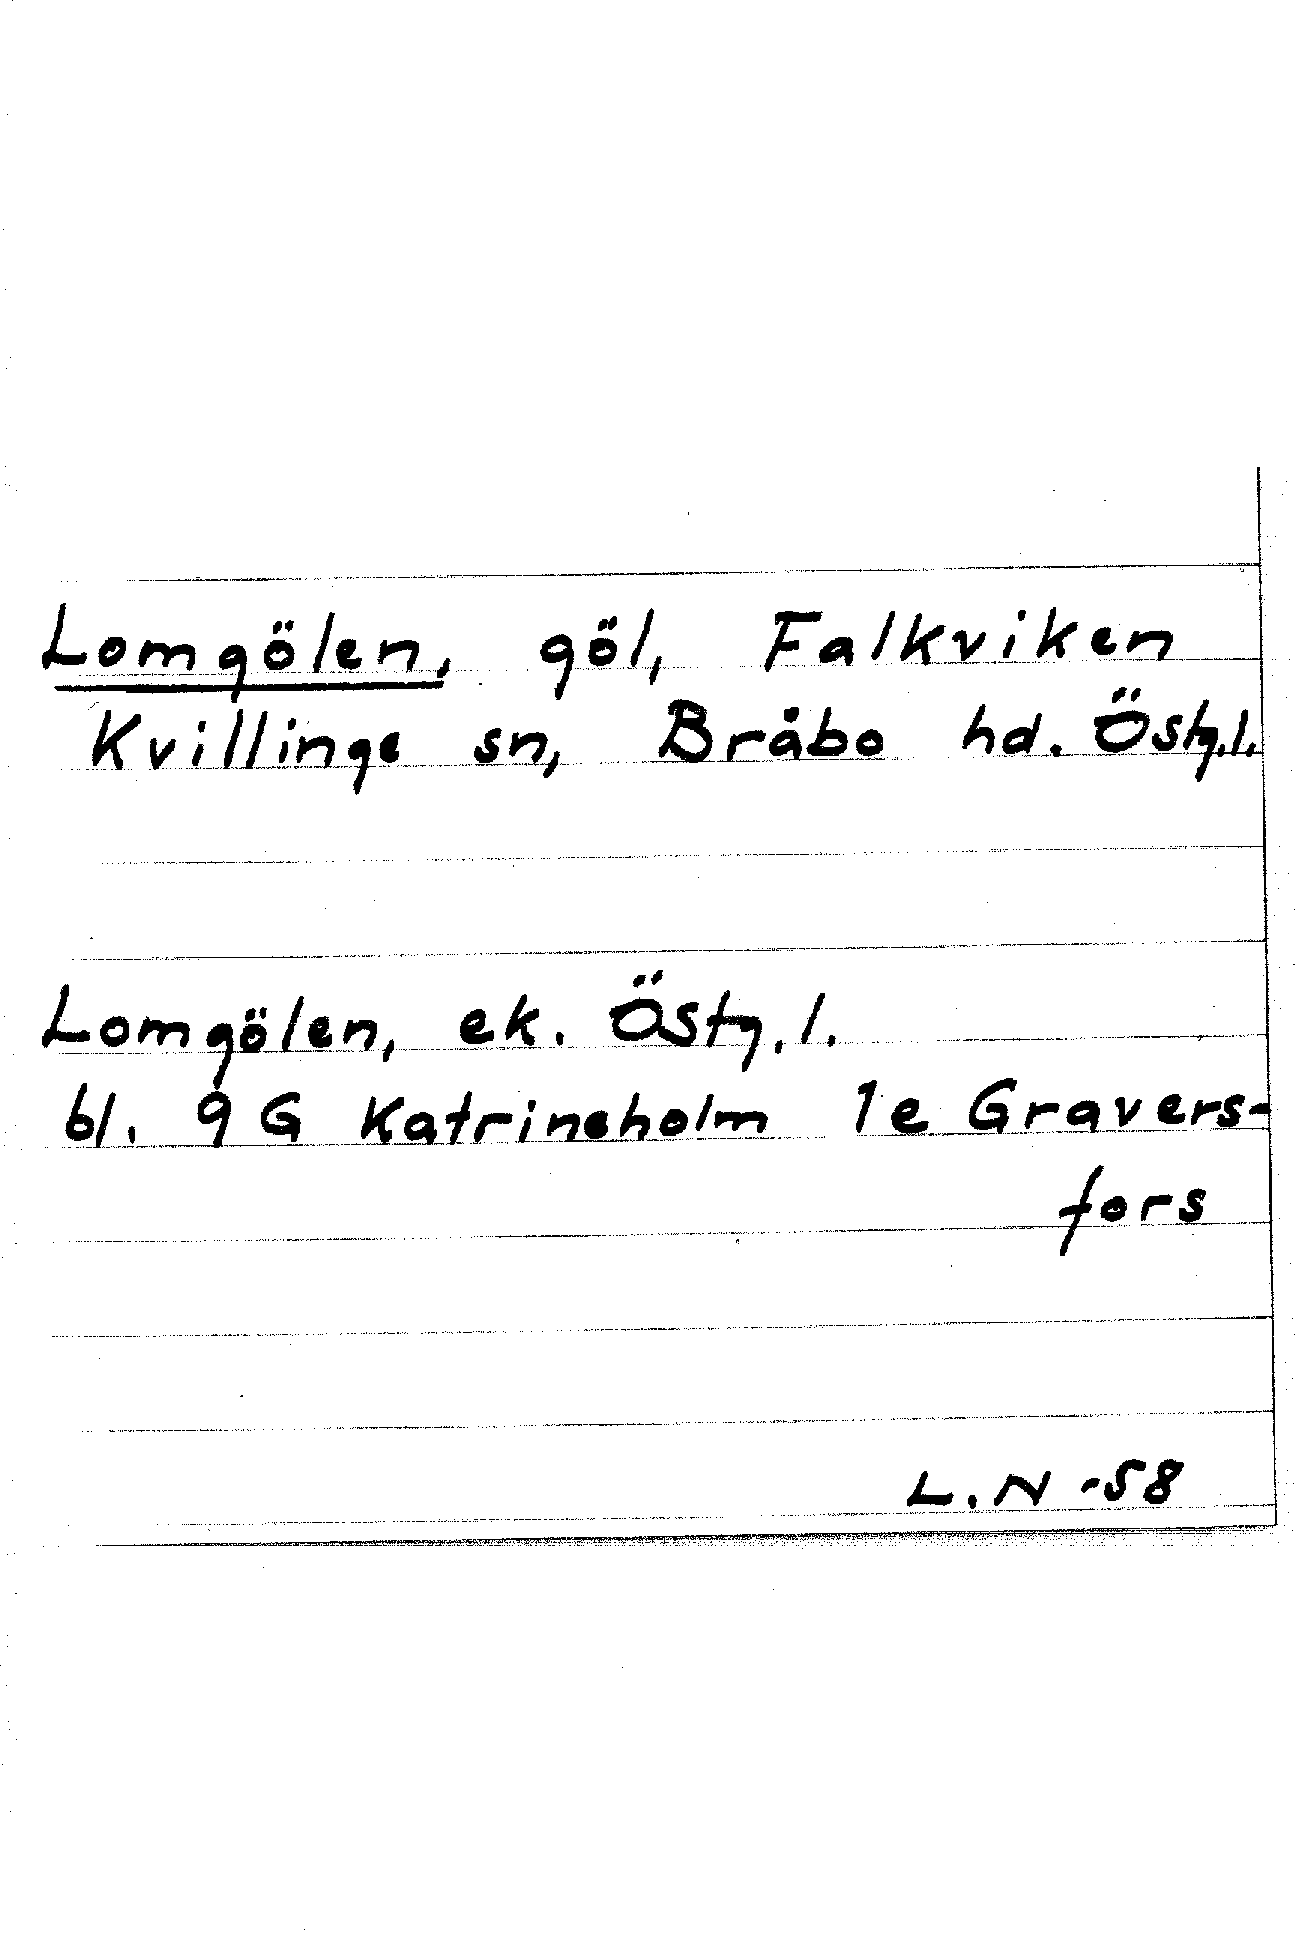 Lomgölen, göl, Falkviken
Kvillinge sn, Bråbo hd. Östg.l.
Lomgölen, ek. Östg.l.
bl. 9 G Katrineholm 1e Gravers-
fors
L.N -58